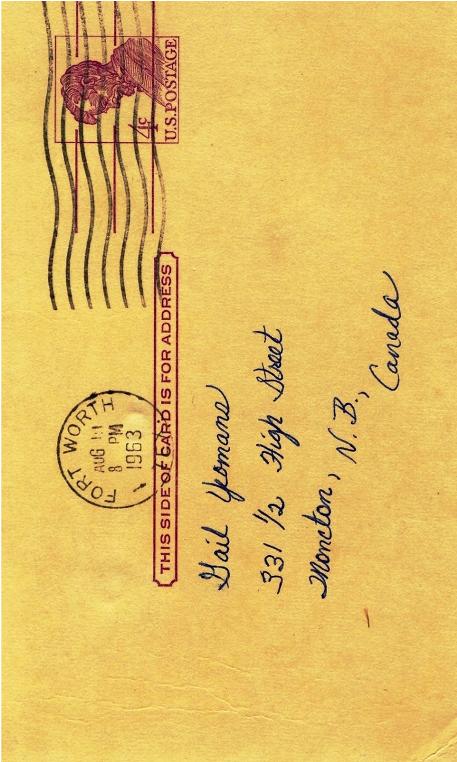 4¢
U.S.POSTAGE
FORT WORTH
AUG
8 PM
1963
THIS SIDE OF CARD IS FOR ADDRESS
Gail Yeomans
331 1/2 High Street
Moncton, N.B.,
Canada